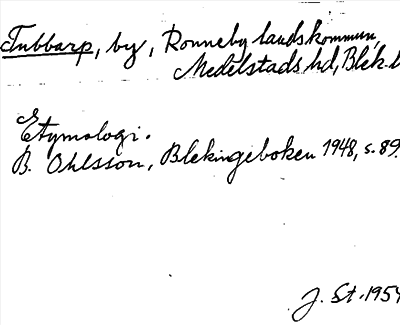 Tubbarp, by, Ronneby landskommun,
Medelstads hd, Blek. l
Etymologi.
B. Ohlsson, Blekingeboken 1948, s. 89.
J. St. 1954